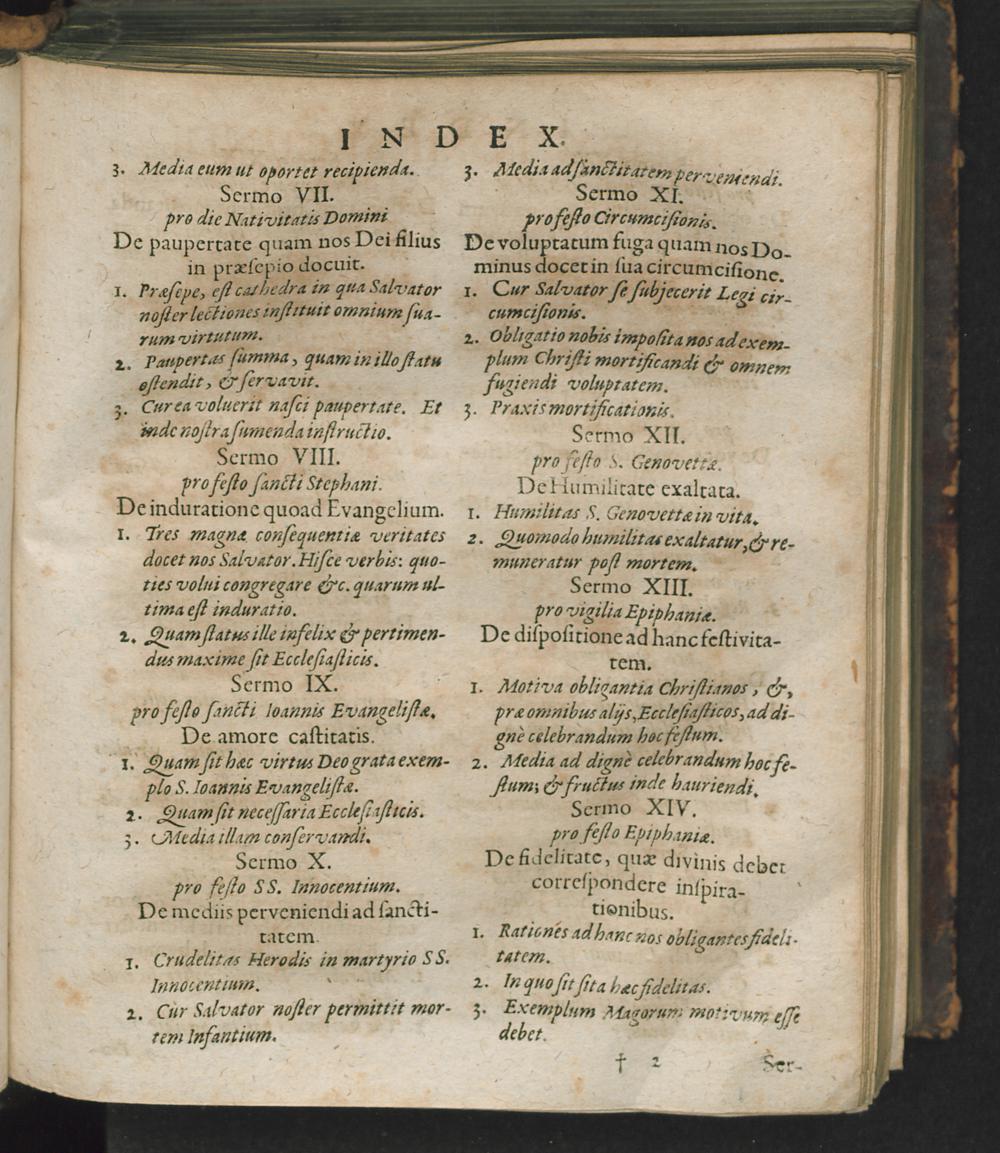 INDEX.
3. Media eum ut oportet recipienda.
Sermo VII.
pro die Nativitatis Domini
De paupertate quam nos Dei filius
in præſepio docuit.
1. Præſepe, eſt cathedra in qua Salvator
noſter lectiones inſtituit omnium ſua-
rum virtutum.
2. Paupertas ſumma, quam in illo ſtatu
oſtendit, & ſervavit.
3. Cur ea voluerit naſci paupertate. Et
inde noſtra ſumenda inſtructio.
Sermo VIII.
pro feſto ſancti Stephani.
De induratione quoad Evangelium.
1. Tres magnæ conſequentiæ veritates
docet nos Salvator. Hiſce verbis: quo-
ties volui congregare &c. quarum ul-
tima eſt induratio.
2. Quam ſtatus ille infelix & pertimen-
dus maxime ſit Eccleſiaſticis.
Sermo IX.
pro feſto ſancti Ioannis Evangeliſtæ.
De amore caſtitatis.
1. Quam ſit hæc virtus Deo grata exem-
plo S. Ioannis Evangeliſtæ.
2. Quam ſit neceſſaria Eccleſiaſticis.
3. Media illam conſervandi.
Sermo X.
pro feſto SS. Innocentium.
De mediis perveniendi ad ſancti-
tatem.
1. Crudelitas Herodis in martyrio SS.
Innocentium.
2. Cùr Salvator noſter permittit mor-
tem Infantium.
3. Media ad ſanctitatem perveniendi.
Sermo XI.
pro feſto Circumciſionis.
De voluptatum fuga quam nos Do-
minus docet in ſua circumciſione.
1. Cur Salvator ſe ſubjecerit Legi cir-
cumciſionis.
2. Obligatio nobis impoſita nos ad exem-
plum Chriſti mortificandi & omnem
fugiendi voluptatem.
3. Praxis mortificationis.
Sermo XII.
pro feſto S. Genovettæ.
De Humilitate exaltata.
1. Humilitas S. Genovettæ in vita.
2. Quomodo humilitas exaltatur, & re-
muneratur poſt mortem.
Sermo XIII.
pro vigilia Epiphaniæ.
De diſpoſitione ad hanc feſtivita-
tem.
1. Motiva obligantia Chriſtianos, &,
præ omnibus alijs, Eccleſiaſticos, ad di-
gnè celebrandum hoc feſtum.
2. Media ad dignè celebrandum hoc fe-
ſtum; & fructus inde hauriendi.
Sermo XIV.
pro feſto Epiphaniæ.
De fidelitate, quæ divinis debet
correſpondere inſpira-
tionibus.
1. Rationes ad hanc nos obligantes fideli-
tatem.
2. In quo ſit ſita hæc fidelitas.
3. Exemplum Magorum motivum eſſe
debet.
† 2 Ser-